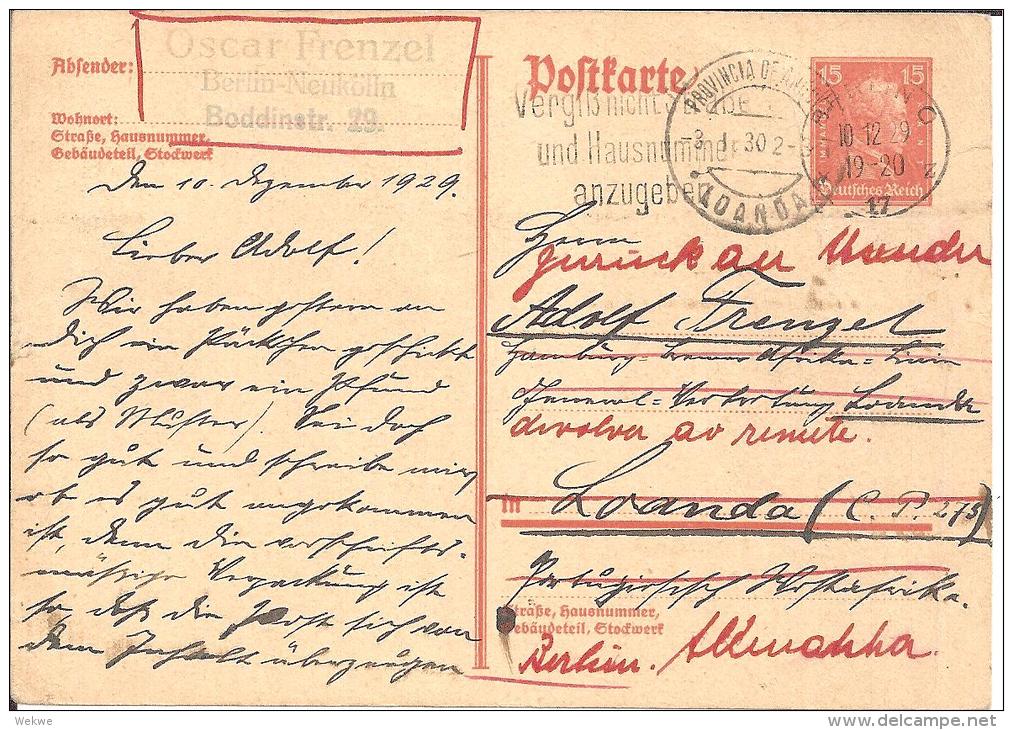 Absender:
Oscar Frenzel
Berlin-Neukölln
Boddinstr. 29.
Wohnort:
Straße, Hausnummer,
Gebäudeteil, Stockwerk
Den 10. Dezember 1929.
Lieber Adolf!
Wir haben gestern an
Dich ein Päckchen geschickt
und zwar ein Pfund
(als Muster). Sei doch
so gut und schreibe mir,
ob es gut angekommen
ist, denn die vorschrifts-
mäßige Verpackung ist
so daß die Post sich von
dem Inhalt überzeugen
Postkarte
Vergiß nicht
und Hausnummer
anzugeben
PROVINCIA DE
-3. 1. 30 2-
LOANDA
BERLIN C
10.12.29
19-20
2
17
15 15
Deutsches Reich
Herrn
zurück an Absender
Adolf Frenzel
Hamburg-Bremer Afrika-Linie
General-Vertretung Loanda
devolva ao remete.
in Loanda (C. P. 275)
Portugiesisch Westafrika.
Straße, Hausnummer,
Gebäudeteil, Stockwerk
Berlim. Allemanha.
Wekwe
© delcampe.net